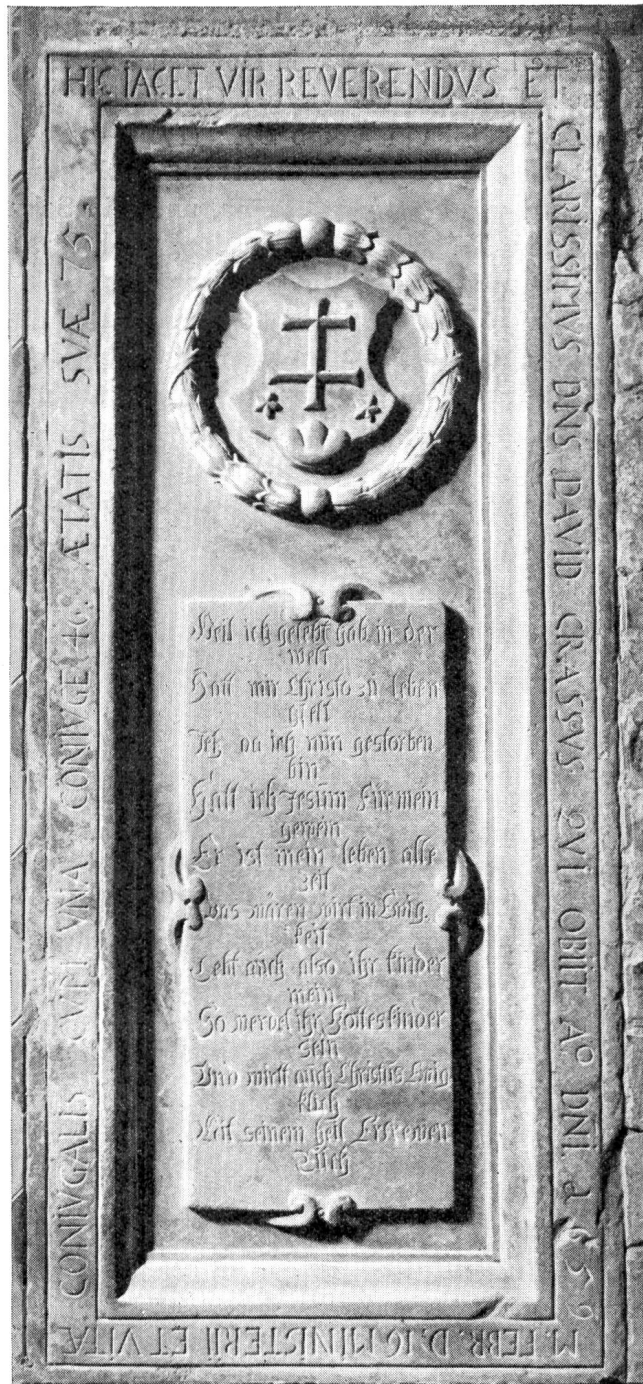 HIC IACET VIR REVERENDVS ET
CLARISSIMVS DNS DAVID CRASSVS QVI OBIIT Aº DNI 1659
M. FEBR. D. 16 MINISTERII ET VITÆ
CONIVGALIS CVM VNA CONIVGE 46. ÆTATIS SVÆ 75.
Weil ich gelebt hab in der
welt
Hatt mir Christo zu leben
gfelt
Jetz da ich nun gestorben
bin
Halt ich Jesum für mein
gewein
Er ist mein leben alle
zeit
Das wären wirt in Ewig,
keit
Lebt auch also ihr kinder
mein
So werdet ihr Gotteskinder
sein
Und wirt auch Christus Ewig
klich
Mit seinem heil Erfrewen